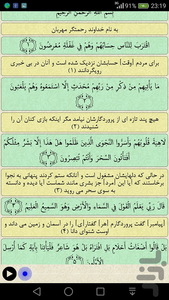 23:19
بِسْمِ اللَّهِ الرَّحْمَٰنِ الرَّحِيمِ
به نام خداوند رحمتگر مهربان
اقْتَرَبَ لِلنَّاسِ حِسَابُهُمْ وَهُمْ فِي غَفْلَةٍ مُعْرِضُونَ ﴿۱﴾
براى مردم [وقت] حسابشان نزديک شده است و آنان در بى خبرى
رويگردانند (۱)
مَا يَأْتِيهِمْ مِنْ ذِكْرٍ مِنْ رَبِّهِمْ مُحْدَثٍ إِلَّا اسْتَمَعُوهُ وَهُمْ يَلْعَبُونَ
﴿۲﴾
هيچ پند تازه اى از پروردگارشان نيامد مگر اينكه بازى كنان آن را
شنيدند (۲)
لَاهِيَةً قُلُوبُهُمْ وَأَسَرُّوا النَّجْوَى الَّذِينَ ظَلَمُوا هَلْ هَذَا إِلَّا بَشَرٌ مِثْلُكُمْ
أَفَتَأْتُونَ السِّحْرَ وَأَنْتُمْ تُبْصِرُونَ ﴿۳﴾
در حالى كه دلهايشان مشغول است و آنانكه ستم كردند پنهانى به نجوا
برخاستند كه آيا اين [مرد] جز بشرى مانند شماست آيا ديده و دانسته
به سوى سحر مى رويد (۳)
قَالَ رَبِّي يَعْلَمُ الْقَوْلَ فِي السَّمَاءِ وَالْأَرْضِ وَهُوَ السَّمِيعُ الْعَلِيمُ ﴿۴﴾
[پيامبر] گفت پروردگارم [هر] گفتار[ى] را در آسمان و زمين مى داند و
اوست شنواى دانا (۴)
بَلْ قَالُوا أَضْغَاثُ أَحْلَامٍ بَلِ افْتَرَاهُ بَلْ هُوَ شَاعِرٌ فَلْيَأْتِنَا بِآيَةٍ كَمَا أُرْسِلَ